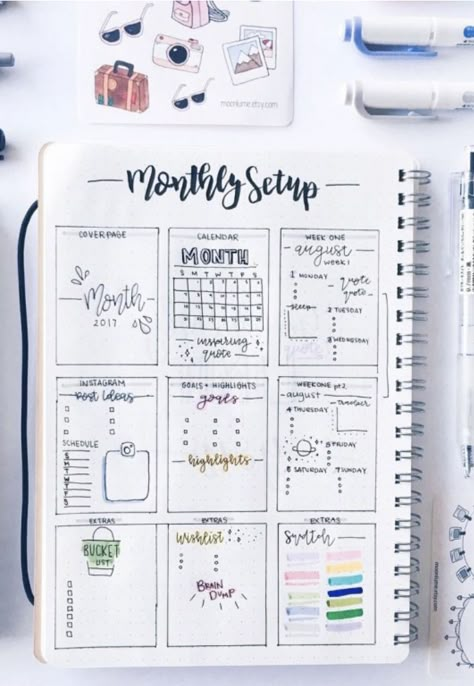 moonlume.etsy.com
Monthly Setup
COVER PAGE
Month
2017
CALENDAR
MONTH
S M T W T F S
inspiring
quote
WEEK ONE
august
WEEK 1
1 MONDAY
quote
quote
sleep
2 TUESDAY
3 WEDNESDAY
quote
INSTAGRAM
Post Ideas
SCHEDULE
S
M
T
W
T
F
S
GOALS + HIGHLIGHTS
goals
highlights
WEEK ONE pt 2
august
4 THURSDAY
tracker
5 FRIDAY
6 SATURDAY
7 SUNDAY
EXTRAS
BUCKET
LIST
EXTRAS
Wishlist
BRAIN
DUMP
EXTRAS
Swatch
moonlume.etsy.com